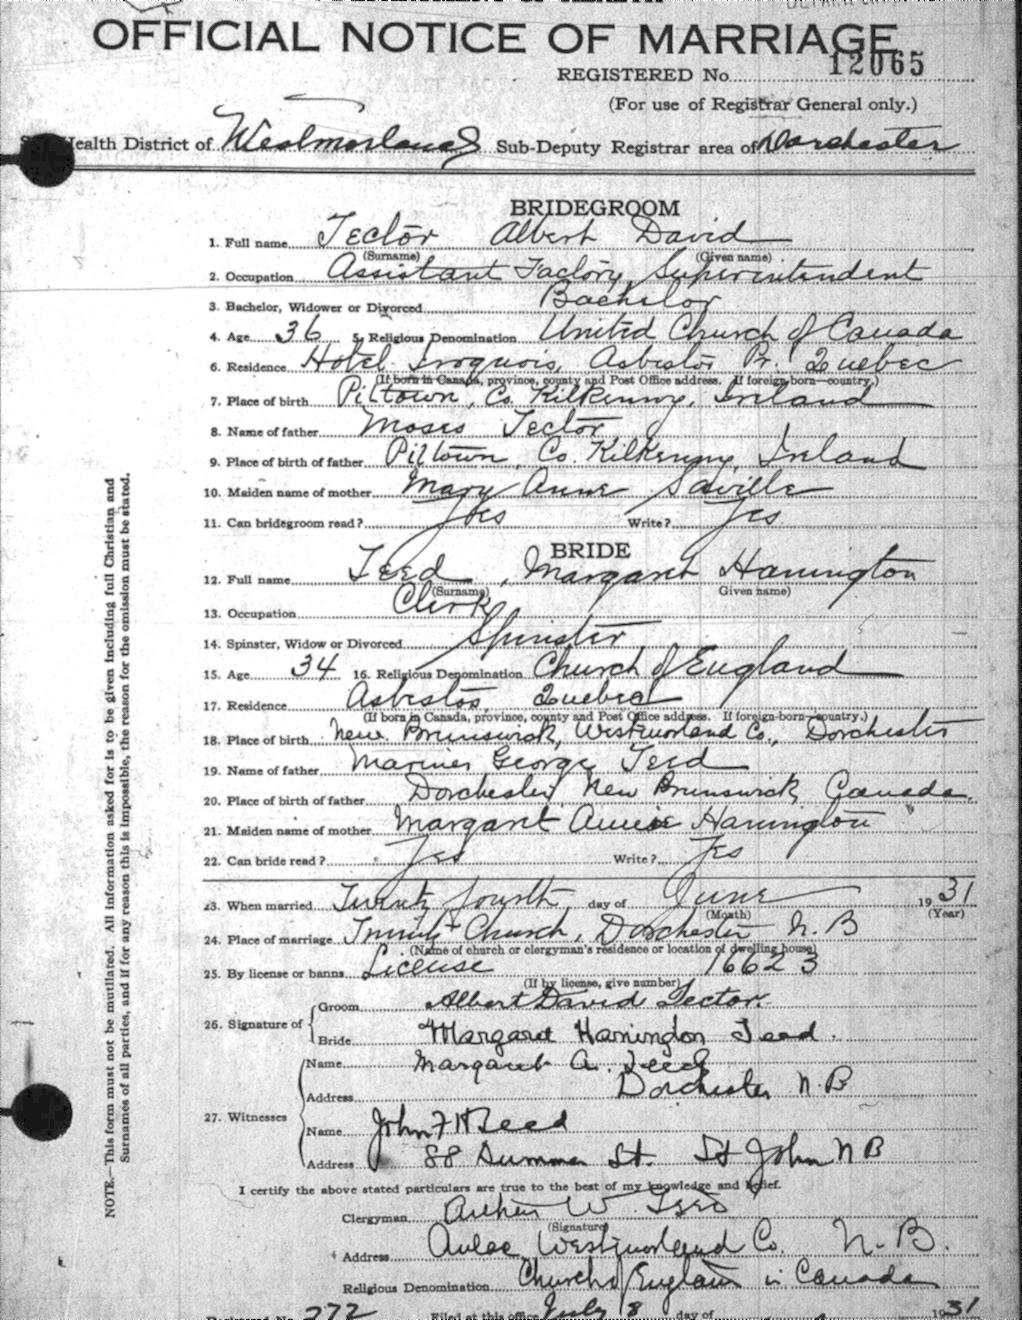 OFFICIAL NOTICE OF MARRIAGE
REGISTERED No. 12065
(For use of Registrar General only.)
Health District of Westmorland Sub-Deputy Registrar area of Dorchester
BRIDEGROOM
1. Full name Tector Albert David
(Surname) (Given name)
2. Occupation Assistant Factory Superintendent
3. Bachelor, Widower or Divorced Bachelor
4. Age 36 5. Religious Denomination United Church of Canada
6. Residence Hotel Iroquois, Asbestos Pr. Quebec
(If born in Canada, province, county and Post Office address. If foreign born—country.)
7. Place of birth Piltown, Co. Kilkenny, Ireland
8. Name of father Moses Tector
9. Place of birth of father Piltown, Co. Kilkenny, Ireland
10. Maiden name of mother Mary Anne Saville
11. Can bridegroom read? Yes Write? Yes
BRIDE
12. Full name Teed, Margaret Hanington
(Surname) Given name)
13. Occupation Clerk
14. Spinster, Widow or Divorced Spinster
15. Age 34 16. Religious Denomination Church of England
17. Residence Asbestos, Quebec
(If born in Canada, province, county and Post Office address. If foreign-born—country.)
18. Place of birth New Brunswick, Westmorland Co., Dorchester
19. Name of father Mariner George Teed
20. Place of birth of father Dorchester New Brunswick, Canada
21. Maiden name of mother Margaret Annie Hanington
22. Can bride read? Yes Write? Yes
23. When married Twenty fourth day of June 1931
(Month) (Year)
24. Place of marriage Trinity Church, Dorchester N.B
(Name of church or clergyman's residence or location of dwelling house)
25. By license or banns License 16623
(If by license, give number)
26. Signature of Groom Albert David Tector.
Bride Margaret Hanington Teed.
27. Witnesses Name Margaret A. Teed
Address Dorchester N.B
Name John F H Teed
Address 88 Summer St. St John N B
I certify the above stated particulars are true to the best of my knowledge and belief.
Clergyman W. Teed
(Signature)
Address Aulac Westmorland Co. N.B.
Religious Denomination Church of England in Canada
Registered No. 272 Filed at this office July 8 day of 1931
NOTE.—This form must not be mutilated. All information asked for is to be given including full Christian and
Surnames of all parties, and if for any reason this is impossible, the reason for the omission must be stated.